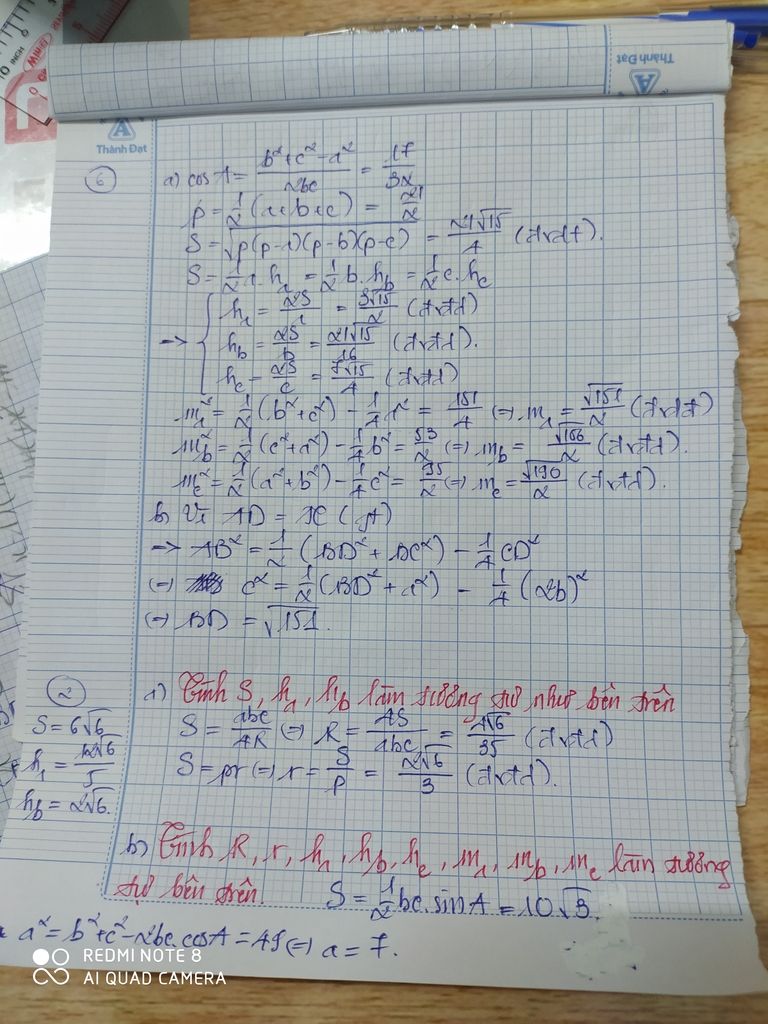 Thành Đạt
Thành Đạt
6
a) cosA = (b² + c² - a²)/2bc = 17/32
p = 1/2 (a+b+c) = 21/2
S = √p(p-a)(p-b)(p-c) = 21√15/4 (đvdt).
S = 1/2 a.hₐ = 1/2 b.h_b = 1/2 c.h_c
=> { hₐ = 2S/a = 3√15/2 (đvđd)
h_b = 2S/b = 21√15/16 (đvđd).
h_c = 2S/c = 7√15/4 (đvđd)
mₐ² = 1/2 (b²+c²) - 1/4 a² = 151/4 (=) mₐ = √151/2 (đvđd)
m_b² = 1/2 (c²+a²) - 1/4 b² = 53/2 (=) m_b = √106/2 (đvđd).
m_c² = 1/2 (a²+b²) - 1/4 c² = 95/2 (=) m_c = √190/2 (đvđd).
b) Vì AD = AC (gt)
=> AB² = 1/2 (BD² + BC²) - 1/4 CD²
(=) c² = 1/2 (BD² + a²) - 1/4 (2b)²
(=) BD = √151.
2
a) Tính S, hₐ, h_b làm tương tự như bên trên
S = 6√6
S = abc/4R (=) R = 4S/abc = 4√6/35 (đvđd)
hₐ = 12√6/5
S = pr (=) r = S/p = 2√6/3 (đvđd).
h_b = 2√6.
b) Tính R, r, hₐ, h_b, h_c, mₐ, m_b, m_c làm tương
tự bên trên. S = 1/2 bc.sinA = 10√3.
a² = b² + c² - 2bc.cosA = 49 (=) a = 7.
REDMI NOTE 8
AI QUAD CAMERA